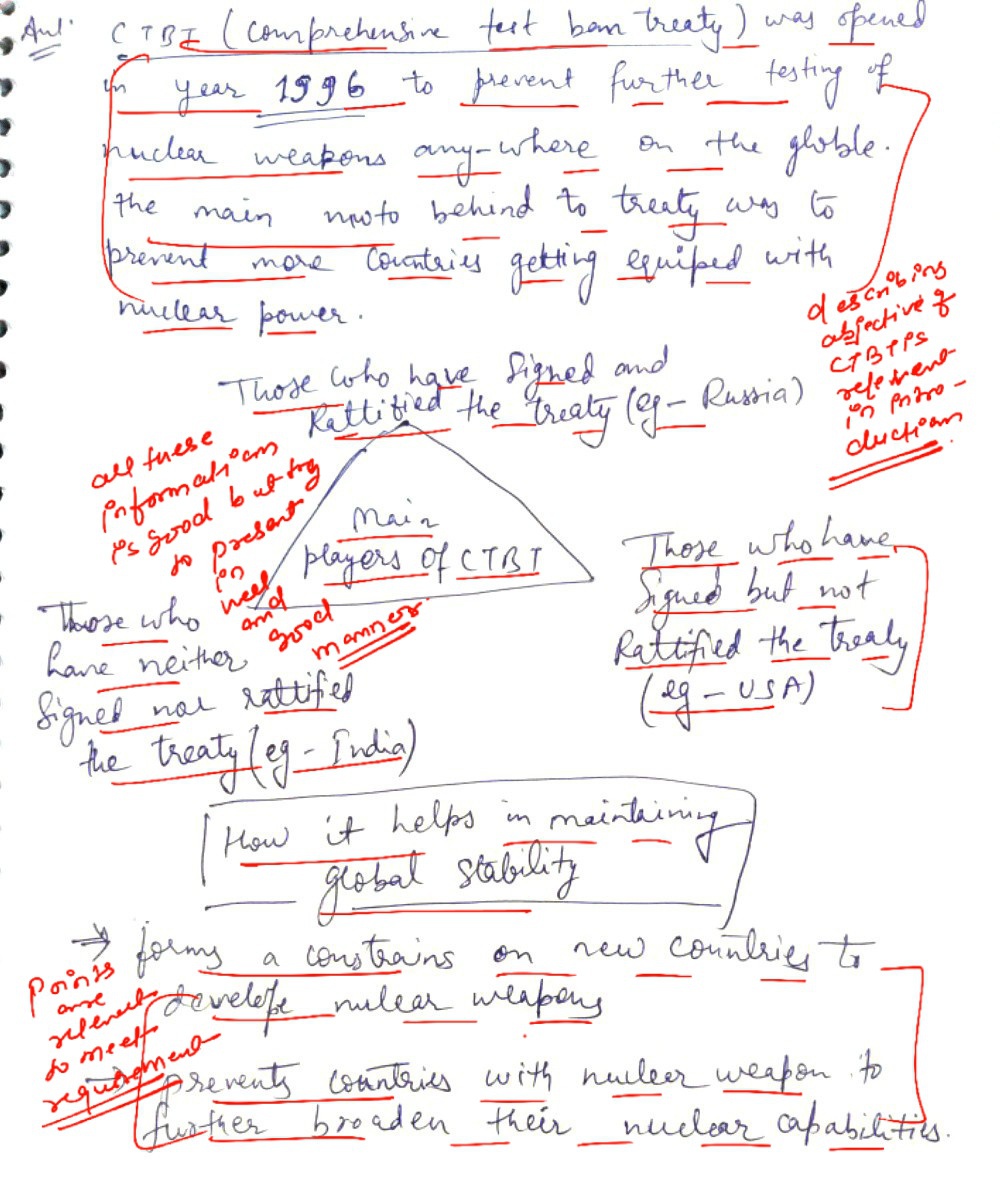 Ans:
CTBT (Comprehensive test ban treaty) was opened
in year 1996 to prevent further testing of
nuclear weapons any-where on the globle.
the main moto behind to treaty was to
prevent more Countries getting equiped with
nuclear power.
describing
objective of
CTBT is
relevent
in intro-
duction
Those who have Signed and
Rattified the treaty (eg - Russia)
all these
information
is good but try
to present
in
neet
and
good
manner.
Main
players of CTBT
Those who have
Signed but not
Rattified the treaty
(eg - USA)
Those who
have neither
Signed nor rattified
the treaty (eg - India)
How it helps in maintaining
global stability
→ forms a constrains on new countries to
develope nulear weapons
points
are
relevent
to meet
requirement
→ prevents countries with nuclear weapon to
further broaden their nuclear capabilities.